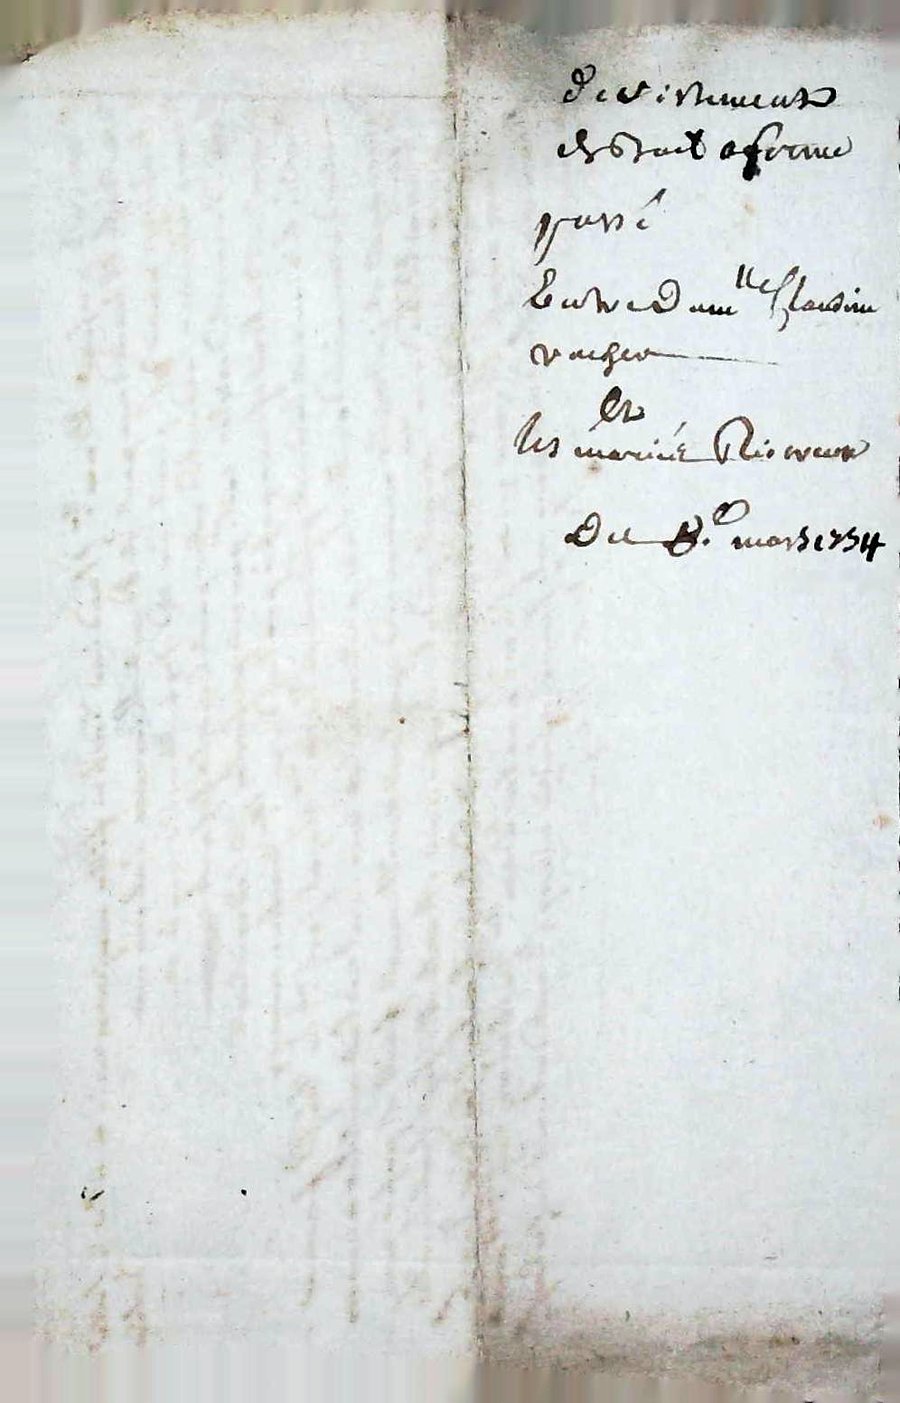 Desistement
de Bail a ferme
passé
Entre Dam<sup>lle</sup> Claudine
vacher
Et
les mariés
Du 8.e mars 1754